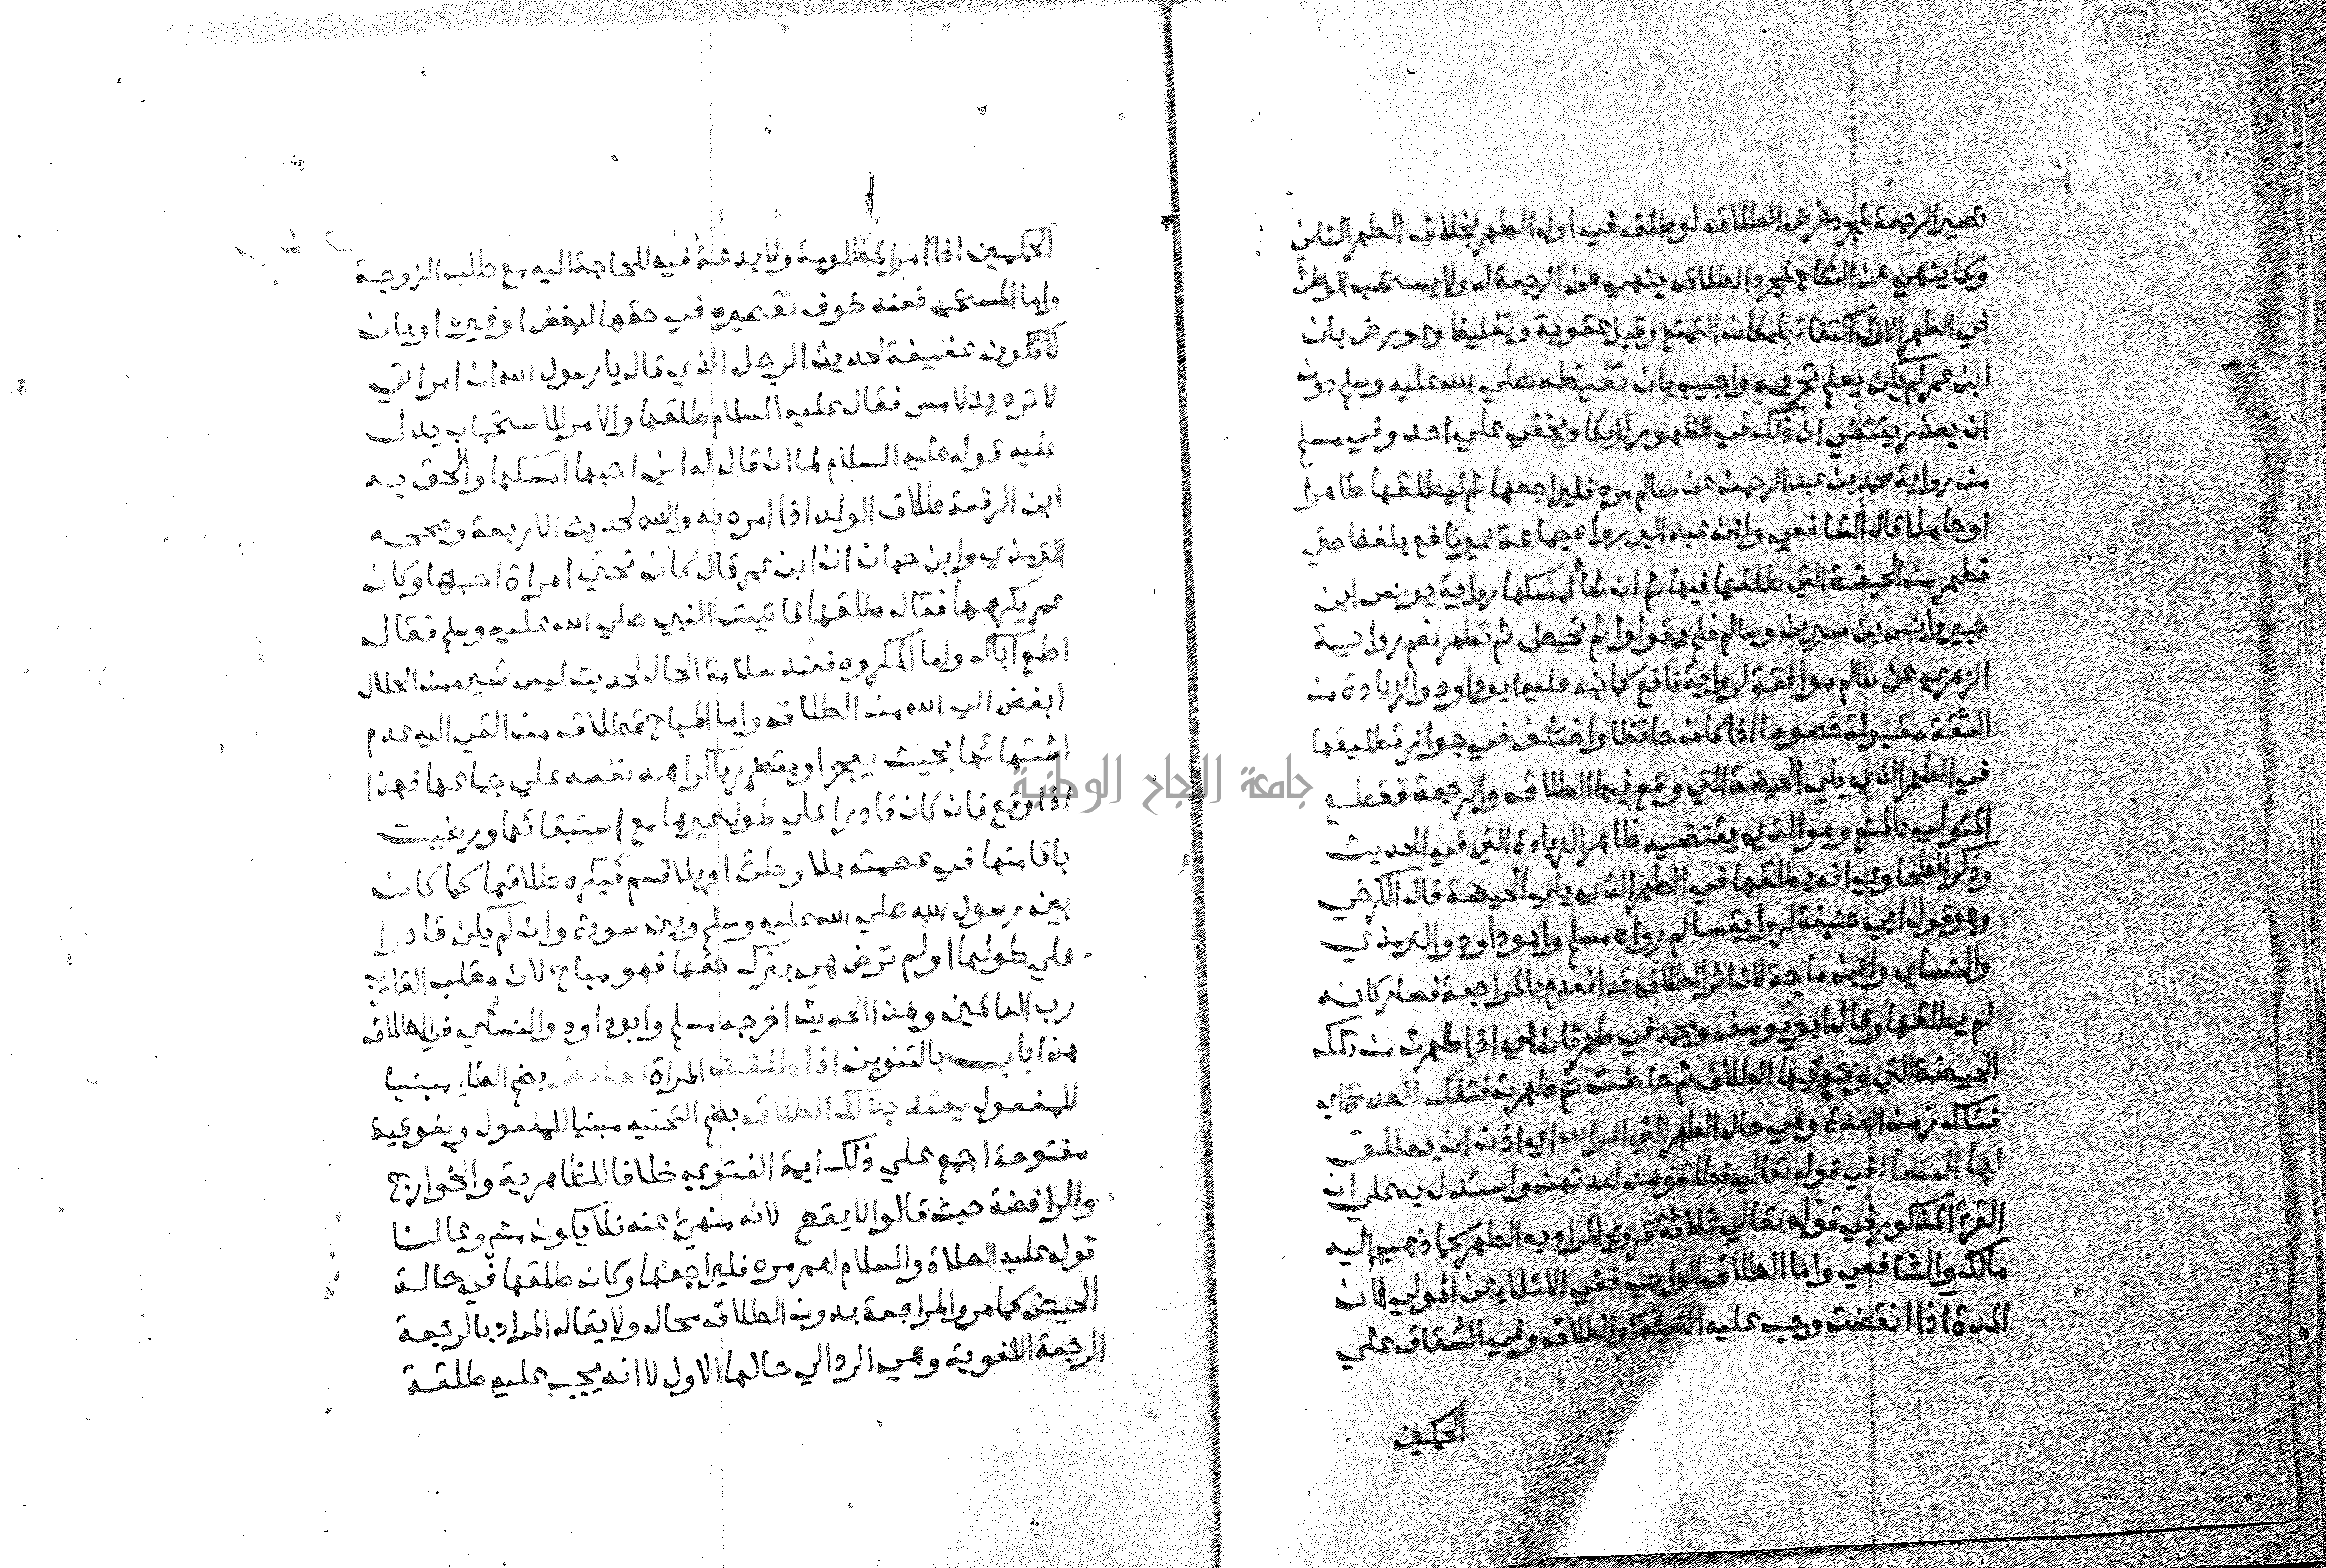 تصير الرجعة لمجرد غرض الطلاق لو طلق في اول الطهر بخلاف الطهر الثاني
وكما ينهي عن النكاح لمجرد الطلاق ينهي عن الرجعة له ولا يستحب الوطئ
في الطهر الاول اكتفاء بامكان التمتع وقيل عقوبة وتغليظا وعورض بان
ابن عمر لم يكن يعلم تحريمه واجيب بان تغيظه صلي الله عليه وسلم دون
ان يعذر يقتضي ان ذلك في الظهور لا يكاد يخفي علي احد وفي مسلم
من رواية محمد بن عبد الرحمن عن سالم مره فليراجعها ثم ليطلقها طاهرا
او حاملا قال الشافعي وابن عبد البر رواه جماعة غير نافع بلفظ حتي
تطهر من الحيضة التي طلقها فيها ثم ان شأ امسكها رواية يونس ابن
جبير وانس بن سيرين وسالم فلم يقولوا ثم تحيض ثم تطهر نعم رواية
الزهري عن سالم موافقة لرواية نافع كما نبه عليه ابو داود والزيادة من
الثقة مقبولة خصوصا اذا كان حافظا واختلف في جواز تطليقها
في الطهر الذي يلي الحيضة التي وقع فيها الطلاق والرجعة فقطع
المتولي بالمنع وهو الذي يقتضيه ظاهر الزيادة التي في الحديث
وذكر الطحاوي انه يطلقها في الطهر الذي يلي الحيضة قال الكرخي
وهو قول ابي حنيفة لرواية سالم رواه مسلم وابو داود والترمذي
والنساي وابن ماجة لان اثر الطلاق قد انعدم بالمراجعة فصار كانه
لم يطلقها وقال ابو يوسف ومحمد في طهر ثان اي اذا طهرت من تلك
الحيضة التي وقع فيها الطلاق ثم حاضت ثم طهرت فتلك العدة اي
فتلك زمن العدة وهي حال الطهر التي امر الله اي اذن ان يطلق
لها النساء في قوله تعالي فطلقوهن لعدتهن واستدل به علي ان
القرء المذكور في قوله تعالي ثلاثة قروء المراد به الطهر كما ذهب اليه
مالك والشافعي واما الطلاق الواجب ففي الائلاء عن المولي لان
المدة اذا انقضت وجب عليه الفيئة او الطلاق وفي الشقاق علي
الحكمين
الحكمين اذا امر المظلومة ولا بدعة فيه للحاجة اليه مع طلب الزوجة
واما المستحب فعند خوف تقصيره في حقها لبغض او غيره او بان
لا تكون عفيفة لحديث الرجل الذي قال يا رسول الله ان امراتي
لا ترد يد لامس فقال عليه السلام طلقها والامر للاستحباب يدل
عليه قوله عليه السلام لما ان قال له اني احبها امسكها والحق به
ابن الرفعة طلاق الولد اذا امره به والده لحديث الاربعة وصححه
الترمذي وابن حبان ان ابن عمر قال كان تحتي امراة احبها وكان
عمر يكرهها فقال طلقها فاتيت النبي صلي الله عليه وسلم فقال
اطع اباك واما المكروه فعند سلامة الحال لحديث ليس شيء من الحلال
ابغض الي الله من الطلاق واما المباح فطلاق من القي اليه عدم
اشتهائها بحيث يعجز او يتضرر باكراهه نفسه علي جماعها فهذا
اذا وقع فان كان قادرا علي طول غيرها مع استبقائها ورغبت
باقامتها في عصمته بلا وطئ او بلا قسم فيكره طلاقها كما كان
بين رسول الله صلي الله عليه وسلم وبين سودة وان لم يكن قادرا
علي طولها او لم ترض هي بترك حقها فهو مباح لان مقلب القلوب
رب العالمين وهذا الحديث اخرجه مسلم وابو داود والنسائي في الطلاق
هذا باب بالتنوين اذا طلقت المراة بضم الطاء مبنيا
للمفعول يعتد بذلك الطلاق بضم التحتيه مبنيا للمفعول وبفوقية
مفتوحة اجمع علي ذلك ايمة الفتوي خلافا للظاهرية والخوارج
والرافضة حيث قالوا لا يقع لانه منهي عنه فلا يكون مشروعا لنا
قوله عليه الصلاة والسلام لعمر مره فليراجعها وكان طلقها في حالة
الحيض كما مر والمراجعة بدون الطلاق محال ولا يقال المراد بالرجعة
الرجعة اللغوية وهي الرد الي حالها الاول لا انه يجب عليه طلقة
جامعة النجاح الوطنية